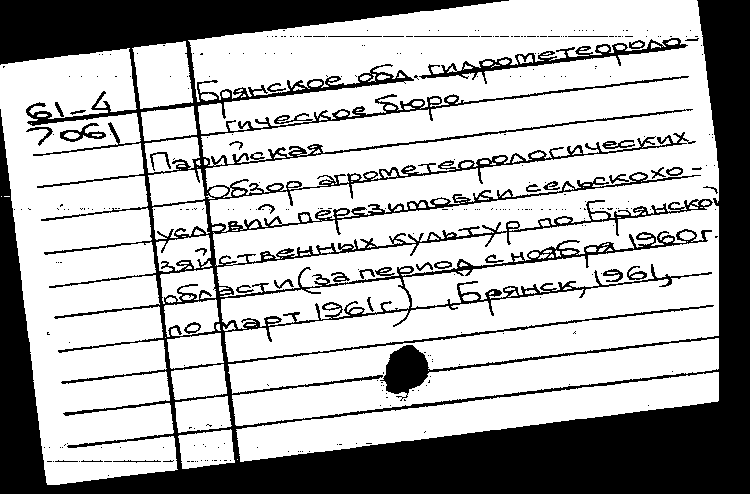 61-4
7061
Брянское обл. гидрометеороло-
гическое бюро.
Парийская
Обзор агрометеорологических
условий перезимовки сельскохо-
зяйственных культур по Брянской
области (за период с ноября 1960г.
по март 1961г.) Брянск, 1961,